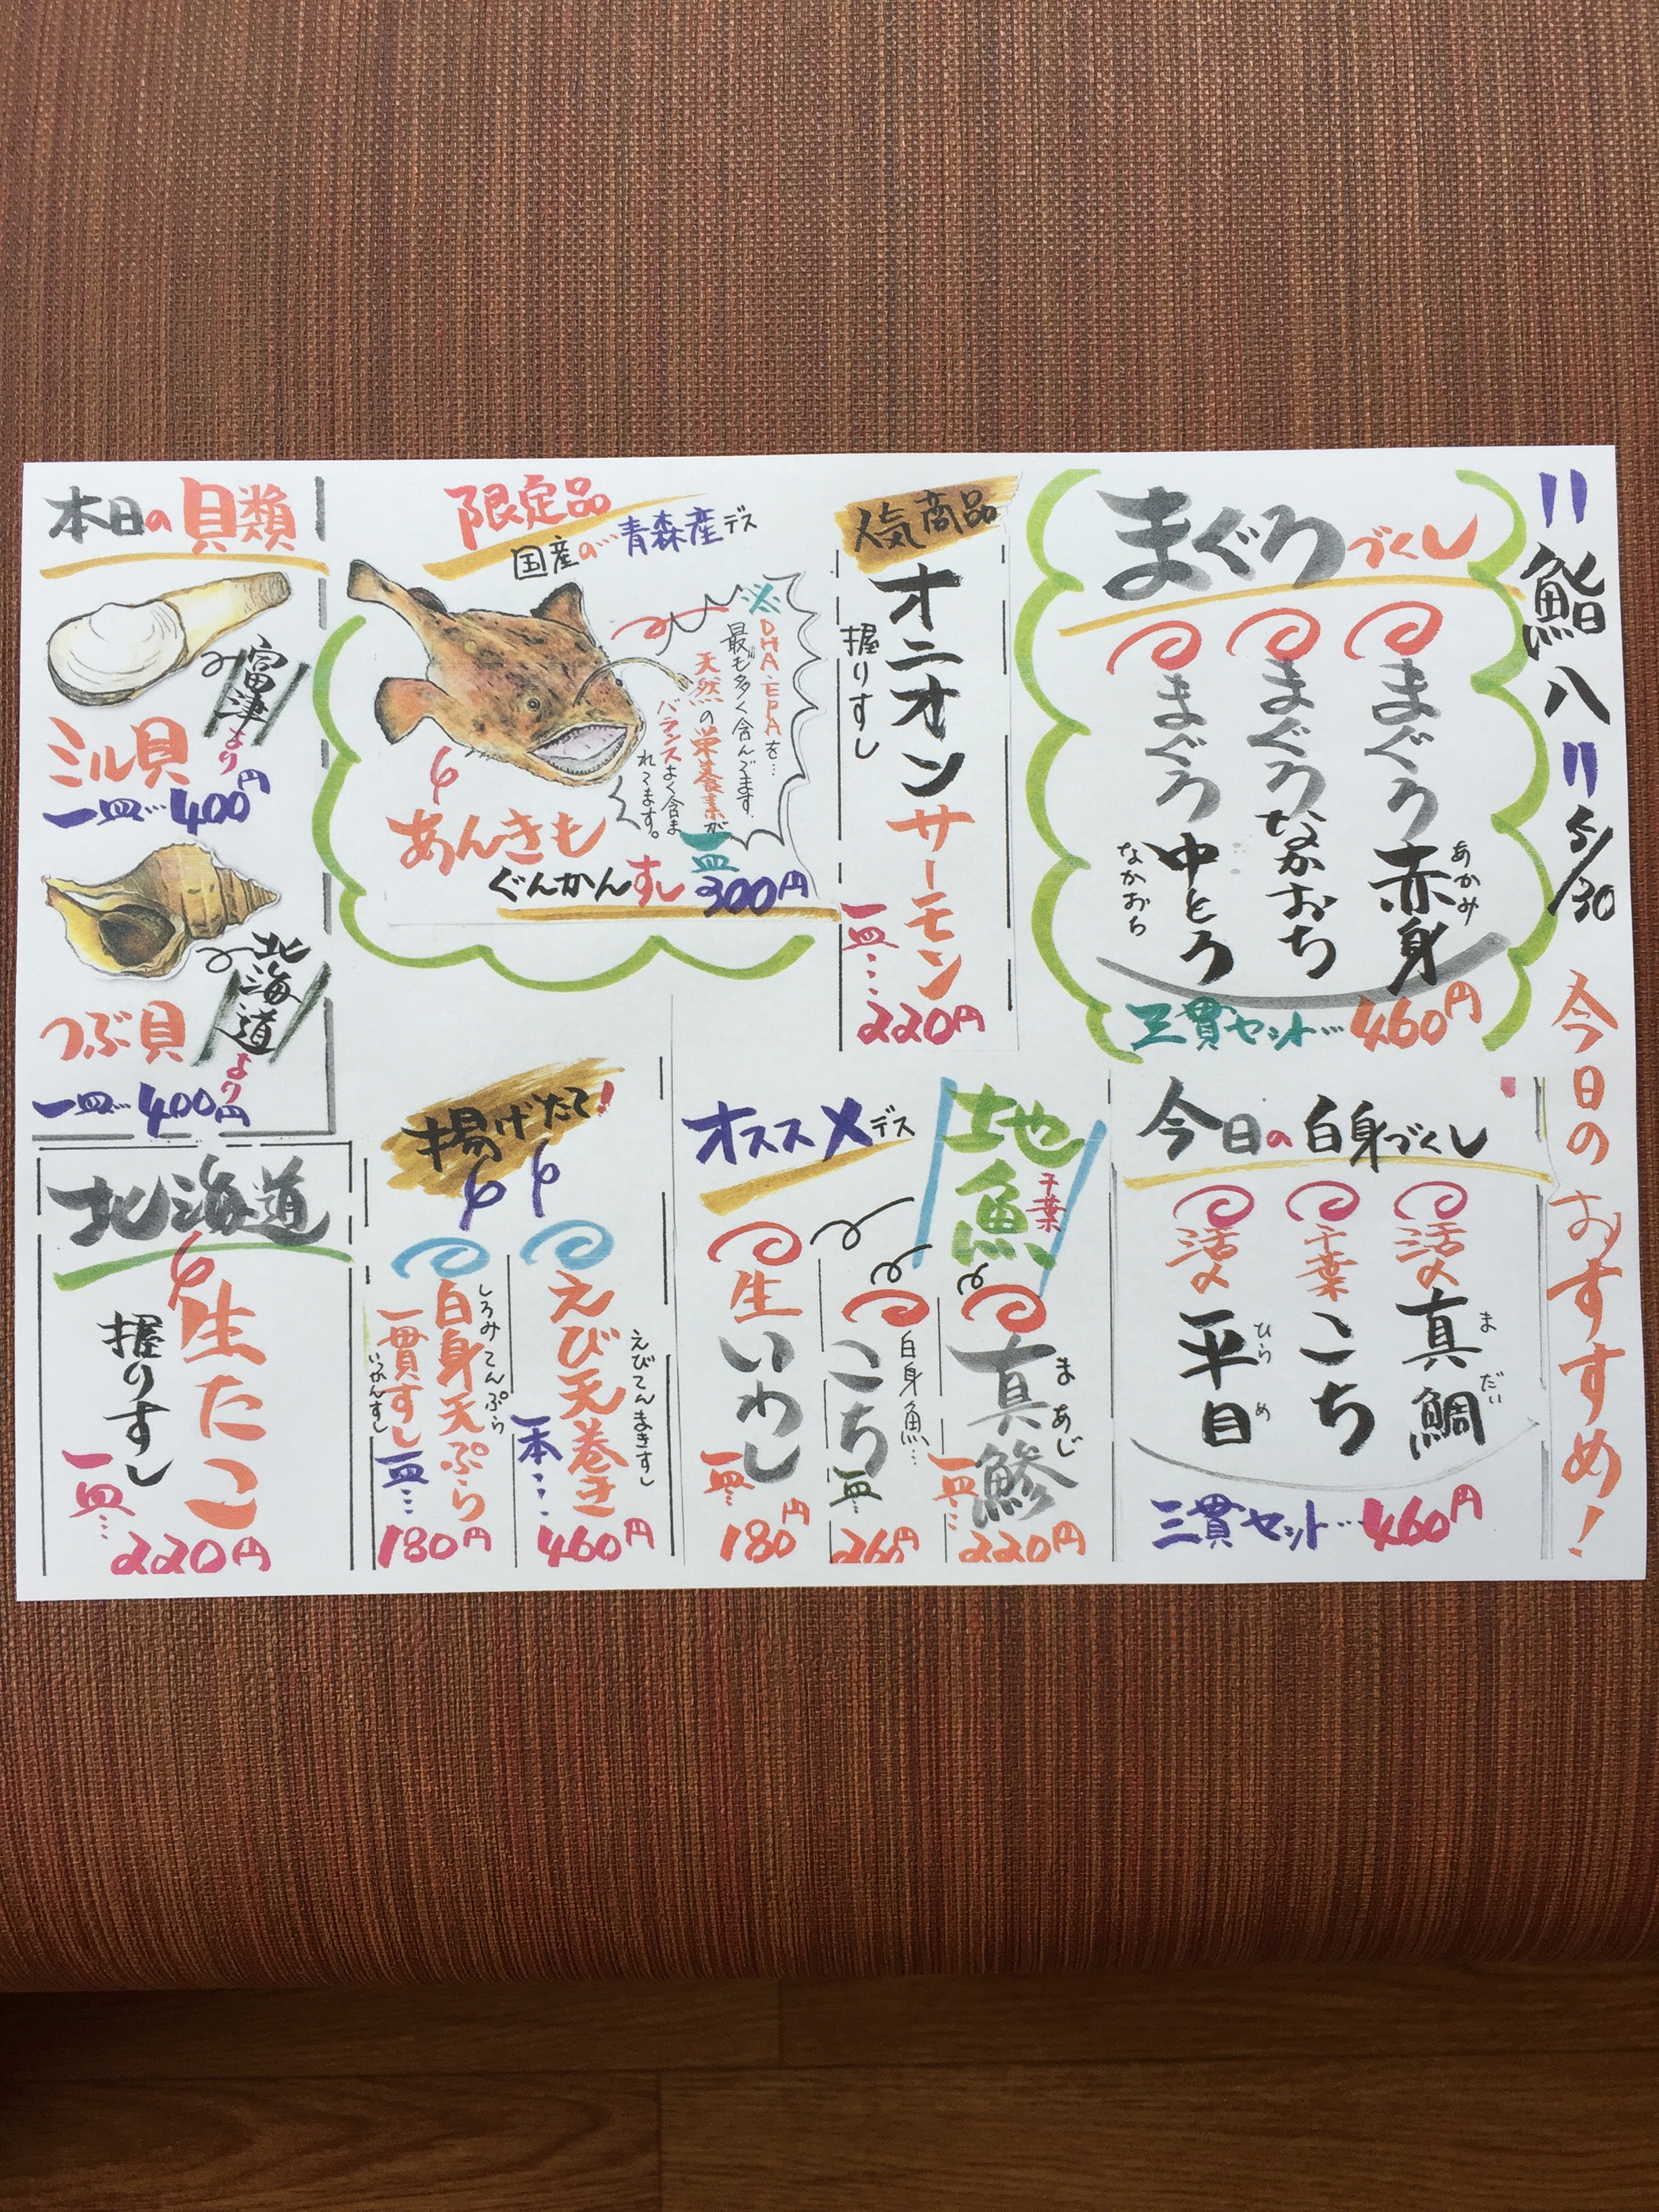 〃鮨八〃 5/30 今日のおすすめ!
まぐろづくし
まぐろ赤身
あかみ
まぐろなかおち
まぐろ中とろ
なかおち
三貫セット…460円
人気商品
オニオンサーモン
握りすし
一皿…220円
限定品
国産の…青森産デス
※DHA・EPAを…
最も多く含んでます。
天然の栄養素が
バランスよく含ま
れてます。
あんきも
ぐんかんすし
一皿
300円
本日の貝類
富津より
ミル貝
一皿…400円
北海道より
つぶ貝
一皿…400円
今日の白身づくし
活〆真鯛
まだい
千葉こち
活〆平目
ひらめ
三貫セット…460円
オススメデス
地魚
千葉
真鯵
まあじ
一皿…220円
白身魚…
こち
一皿…260円
生いわし
一皿…180円
揚げたて!
えび天巻き
えびてんまきすし
一本…460円
白身天ぷら
しろみてんぷら
一貫すし
いっかんすし
一皿…180円
北海道
生たこ
握りすし
一皿…220円